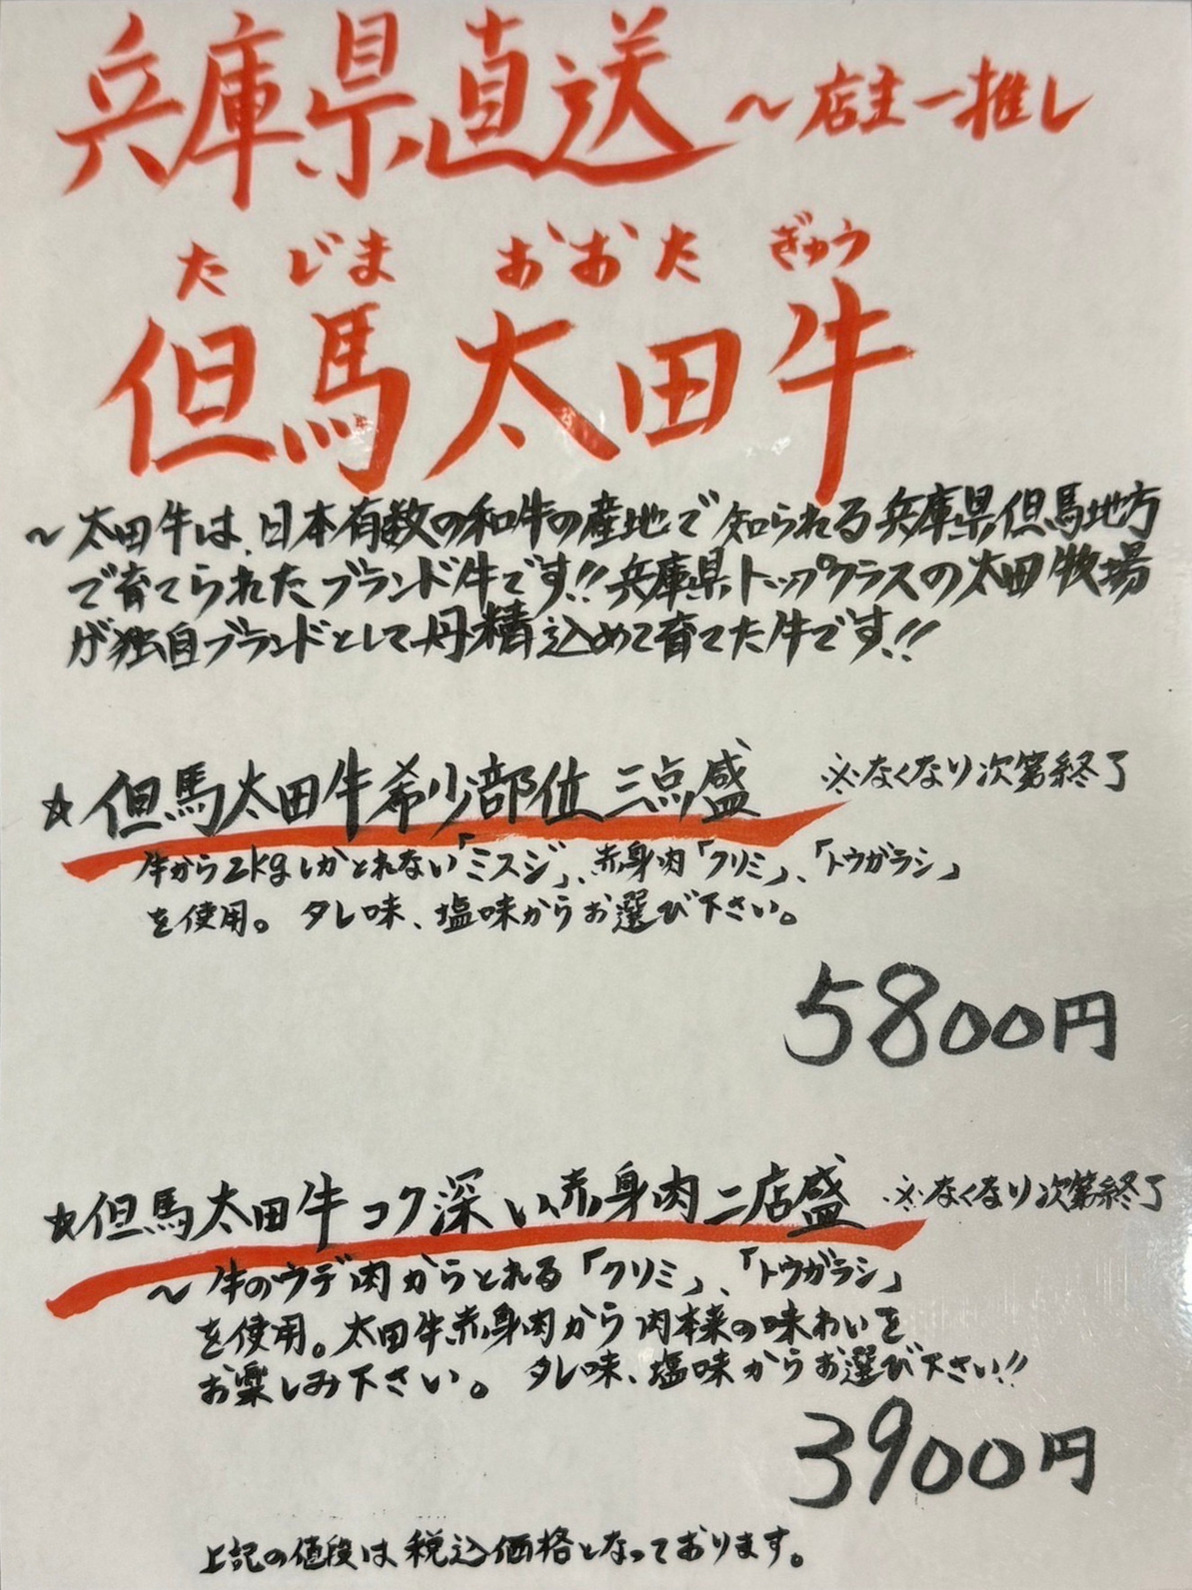 兵庫県直送 ～店主一推し
たじま おおた ぎゅう
但馬太田牛
～太田牛は、日本有数の和牛の産地で知られる兵庫県但馬地方
で育てられたブランド牛です!!兵庫県トップクラスの太田牧場
が独自ブランドとして丹精込めて育てた牛です!!
☆但馬太田牛希少部位三点盛 ※なくなり次第終了
牛から2kgしかとれない「ミスジ」、赤身肉「クリミ」、「トウガラシ」
を使用。タレ味、塩味からお選び下さい。
5800円
☆但馬太田牛コク深い赤身肉二店盛 ※なくなり次第終了
～牛のウデ肉からとれる「クリミ」、「トウガラシ」
を使用。太田牛赤身肉から肉本来の味わいを
お楽しみ下さい。タレ味、塩味からお選び下さい!!
3900円
上記の値段は税込価格となっております。